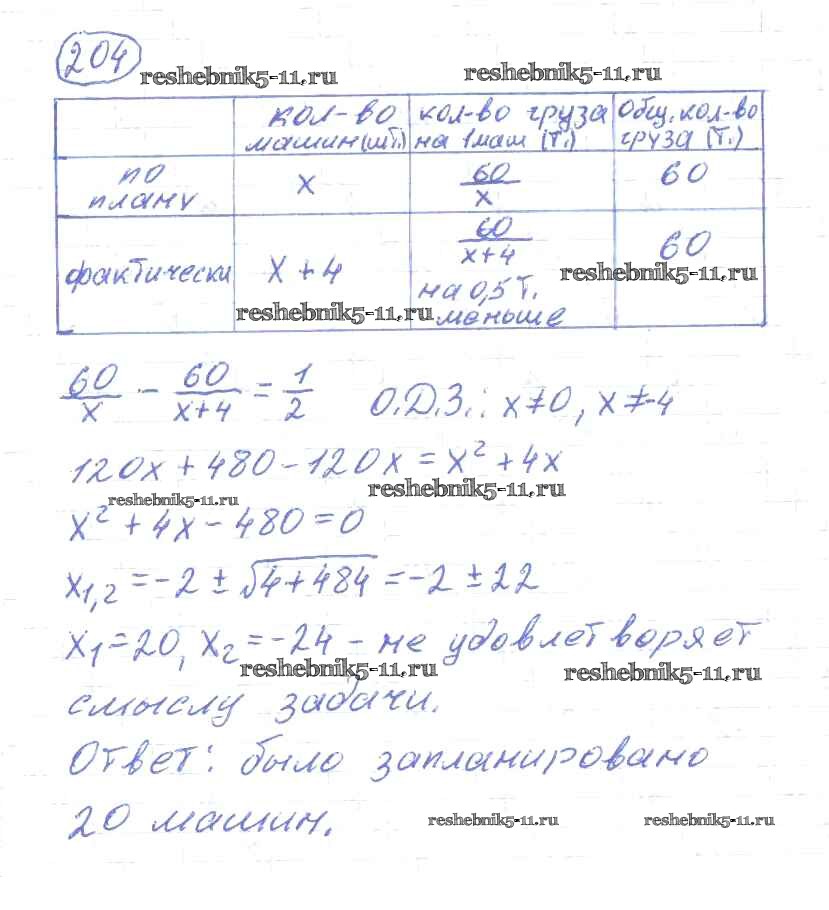 204
reshebnik5-11.ru reshebnik5-11.ru
кол-во машин(шт.) кол-во груза на 1маш (т.) Общ. кол-во груза (т.)
по плану x 60/x 60
фактически x+4 60/(x+4) на 0,5 т. меньше 60
reshebnik5-11.ru
reshebnik5-11.ru
60/x - 60/(x+4) = 1/2 О.Д.З.: x≠0, x≠-4
120x + 480 - 120x = x² + 4x
reshebnik5-11.ru reshebnik5-11.ru
x² + 4x - 480 = 0
x1,2 = -2 ± √4+484 = -2 ± 22
x1=20, x2=-24 - не удовлетворяет
reshebnik5-11.ru reshebnik5-11.ru
смыслу задачи.
Ответ: было запланировано
20 машин.
reshebnik5-11.ru reshebnik5-11.ru